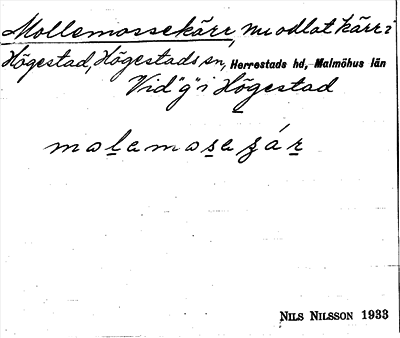 Mollemossekärr, nu odlat kärr i
Högestad, Högestads sn, Herrestads hd, Malmöhus län
Vid "g" i Högestad
malamosaʒár
NILS NILSSON 1933